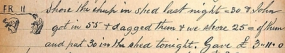 FR 11 Shore the chunk in shed last night = 30 & John
got in 55 & dagged them & we shore 25 of them
and put 30 in the shed tonight, Gave L 3-11-0